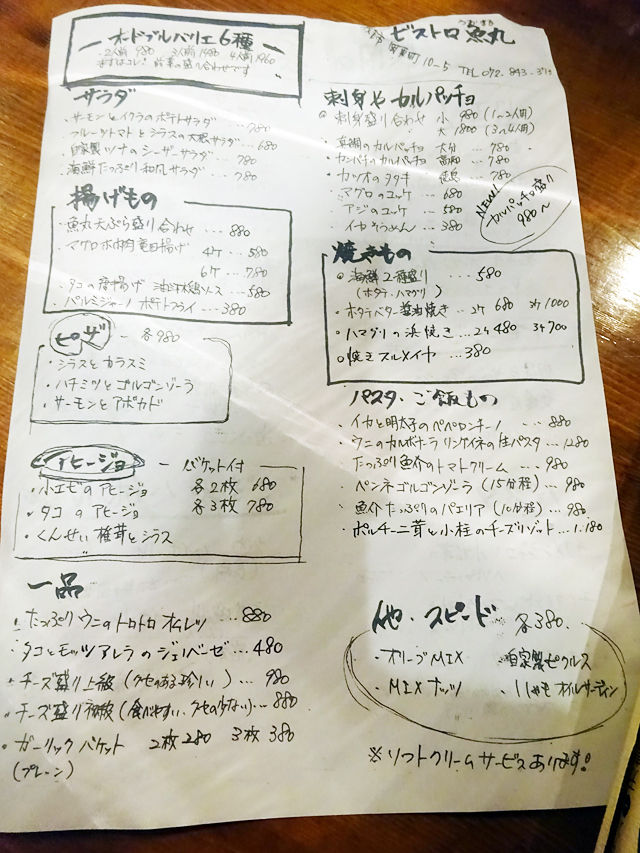 オードブルバリエ6種
・2人前 980 3人前 1480 4人前 1960
まずはコレ! 前菜の盛り合わせです
ビストロ 魚丸
10-5 TEL 072-843-
サラダ
・サーモンとイクラのポテトサラダ ... 780
・フルーツトマトとシラスの大根サラダ ... 680
・自家製ツナのシーザーサラダ ... 780
・海鮮たっぷり和風サラダ ... 780
刺身やカルパッチョ
◎刺身盛り合わせ 小 980 (1〜2人用)
大 1800 (3〜4人用)
・真鯛のカルパッチョ 大分 ... 780
・カンパチのカルパッチョ 高知 ... 780
・カツオのタタキ 徳島 ... 780
・マグロのユッケ ... 680
・アジのユッケ ... 580
・イカそうめん ... 380
NEW!
カルパッチョ盛り
980〜
揚げもの
・魚丸天ぷら盛り合わせ ... 880
・マグロホホ肉竜田揚げ
4ケ ... 580
6ケ ... 780
・タコの唐揚げ ... 580
・パルミジャーノポテトフライ ... 380
焼きもの
◎海鮮2種盛り ... 580
(ホタテ・ハマグリ)
・ホタテバター醤油焼き ... 2ケ 680 3ケ 1000
・ハマグリの浜焼き ... 2ケ 480 3ケ 700
○焼きスルメイカ ... 380
ピザ ー 各980
・シラスとカラスミ
・ハチミツとゴルゴンゾーラ
・サーモンとアボカド
パスタ・ご飯もの
・イカと明太子のペペロンチーノ ... 880
・ウニのカルボナーラ リングイネの生パスタ ... 1280
・たっぷり魚介のトマトクリーム ... 980
・ペンネゴルゴンゾーラ (15分程) ... 980
・魚介たっぷりのパエリア (10分程) ... 980
・ポルチーニ茸と小柱のチーズリゾット ... 1.180
アヒージョ ー バケット付
・小エビのアヒージョ 各2枚 680
・タコのアヒージョ 各3枚 780
・くんせい椎茸とシラス
一品
・たっぷりウニのトロトロオムレツ ... 880
・タコとモッツァレラのジェノベーゼ ... 480
・チーズ盛り上級 (クセのある珍しい) ... 980
・チーズ盛り初級 (食べやすい、クセの少ない) ... 880
・ガーリックバケット 2枚 280 3枚 380
(プレーン)
スピード 各380.
・オリーブMIX ・自家製ピクルス
・MIXナッツ ・ししゃもオイルサーディン
※ソフトクリームサービスあります!